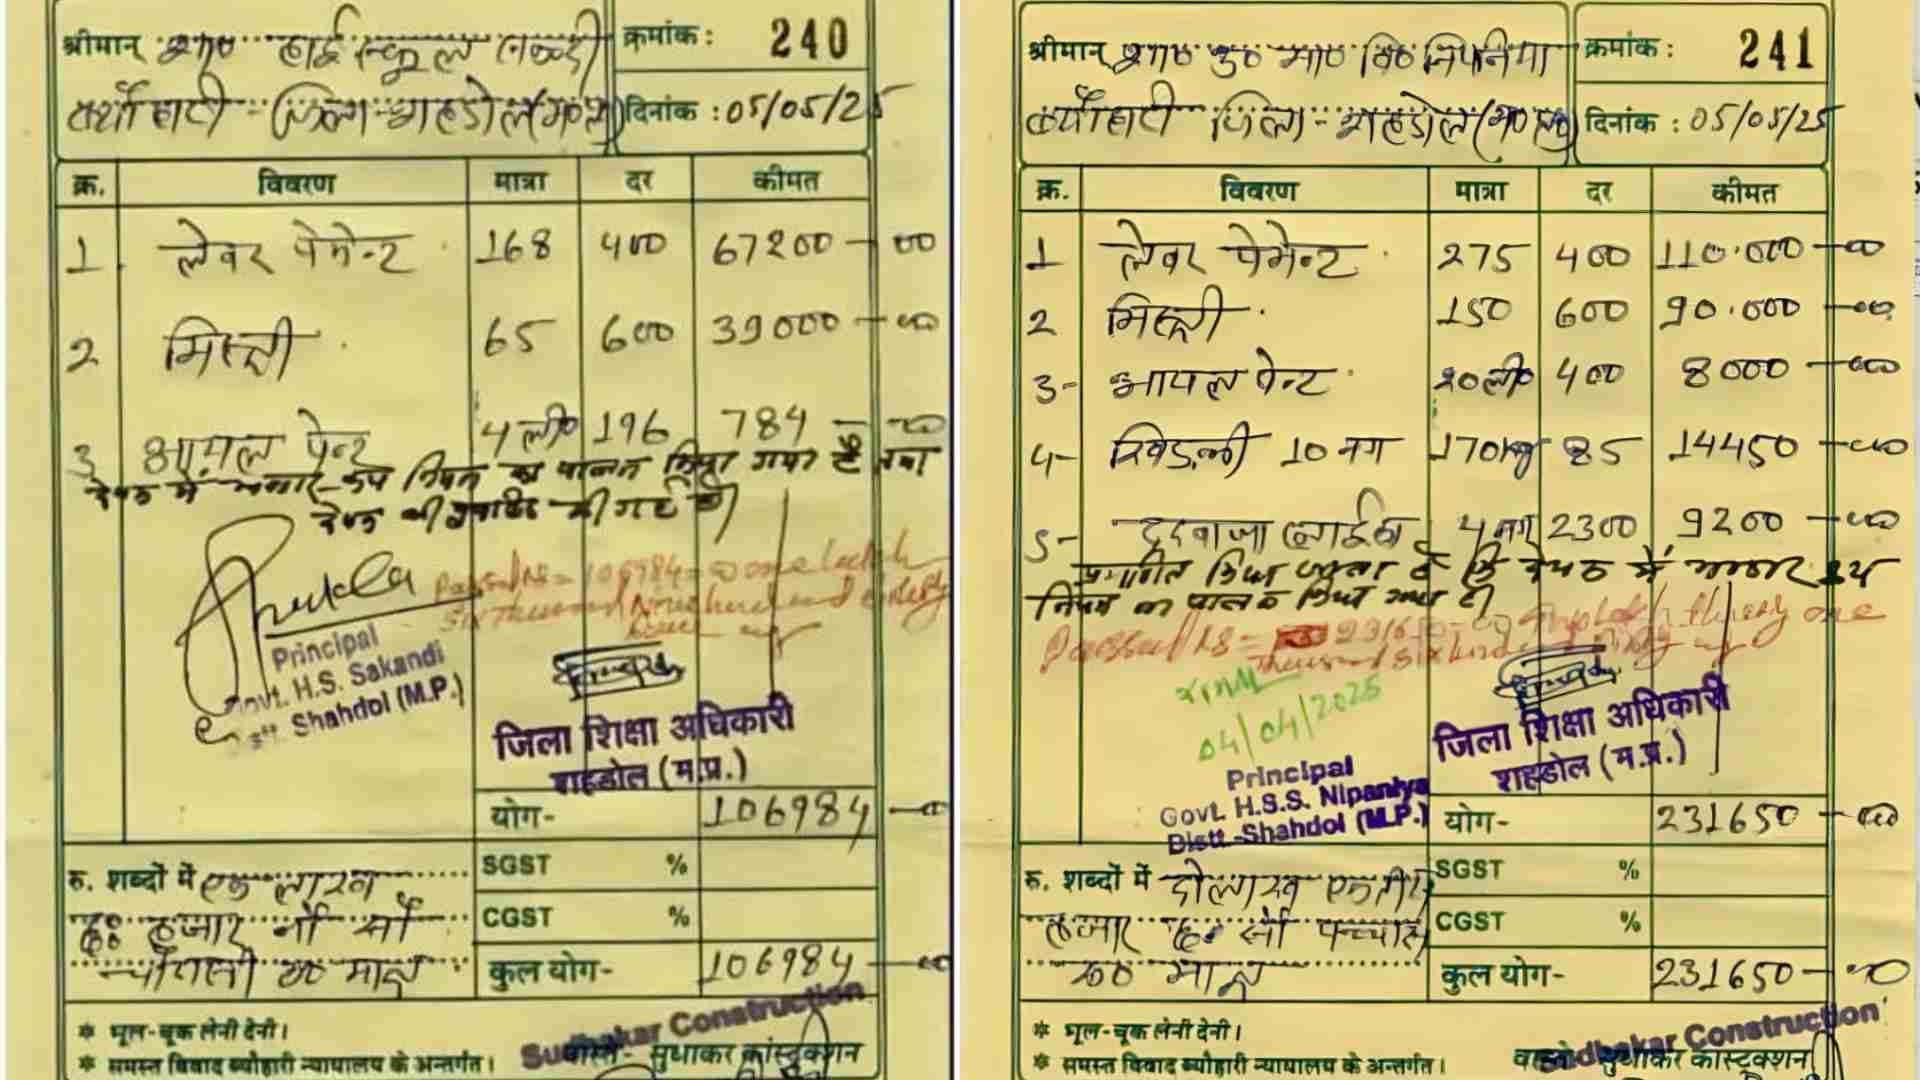 श्रीमान् शा० हाई स्कूल सकन्दी
क्रमांक: 240
ब्यौहारी जिला-शहडोल (म०प्र०)
दिनांक : 05/05/25
क्र. विवरण मात्रा दर कीमत
1 लेबर पेमेन्ट 168 400 67200 - 00
2 मिस्त्री 65 600 39000 - 00
3 आयल पेन्ट 4 ली० 196 784 - 00
में भण्डार क्रय नियम का पालन किया गया है तथा
की गई है।
Passed Rs = 106984 = 00 one lakh
Six thousand Nine hundred eighty
four
Principal
Govt. H.S. Sakandi
Distt. Shahdol (M.P.)
जिला शिक्षा अधिकारी
शहडोल (म.प्र.)
योग- 106984 - 00
रु. शब्दों में एक लाख
छः हजार नौ सौ
चौरासी रु० मात्र
SGST %
CGST %
कुल योग- 106984 - 00
* भूल-चूक लेनी देनी।
* समस्त विवाद ब्यौहारी न्यायालय के अन्तर्गत।
Sudhakar Construction
वास्ते- सुधाकर कांस्ट्रक्शन
श्रीमान् शा० उ० मा० वि० निपनिया
क्रमांक: 241
ब्यौहारी जिला-शहडोल (म०प्र०)
दिनांक : 05/05/25
क्र. विवरण मात्रा दर कीमत
1 लेबर पेमेन्ट 275 400 110.000 - 00
2 मिस्त्री 150 600 90.000 - 00
3- आयल पेन्ट 20 ली० 400 8000 - 00
4- खिड़की 10 नग 170kg 85 14450 - 00
5- दरवाजा 4 नग 2300 9200 - 00
प्रमाणित किया जाता है कि में भण्डार क्रय
नियम का पालन किया गया है।
Passed Rs = 231650 - 00 Two lakh thirty one
thousand six hundred fifty
04/04/2025
Principal
Govt. H.S.S. Nipaniya
Distt.-Shahdol (M.P.)
जिला शिक्षा अधिकारी
शहडोल (म.प्र.)
योग- 231650 - 00
रु. शब्दों में दो लाख एकतीस
हजार छः सौ पच्चास
रु० मात्र
SGST %
CGST %
कुल योग- 231650 - 00
* भूल-चूक लेनी देनी।
* समस्त विवाद ब्यौहारी न्यायालय के अन्तर्गत।
Sudhakar Construction
वास्ते सुधाकर कांस्ट्रक्शन